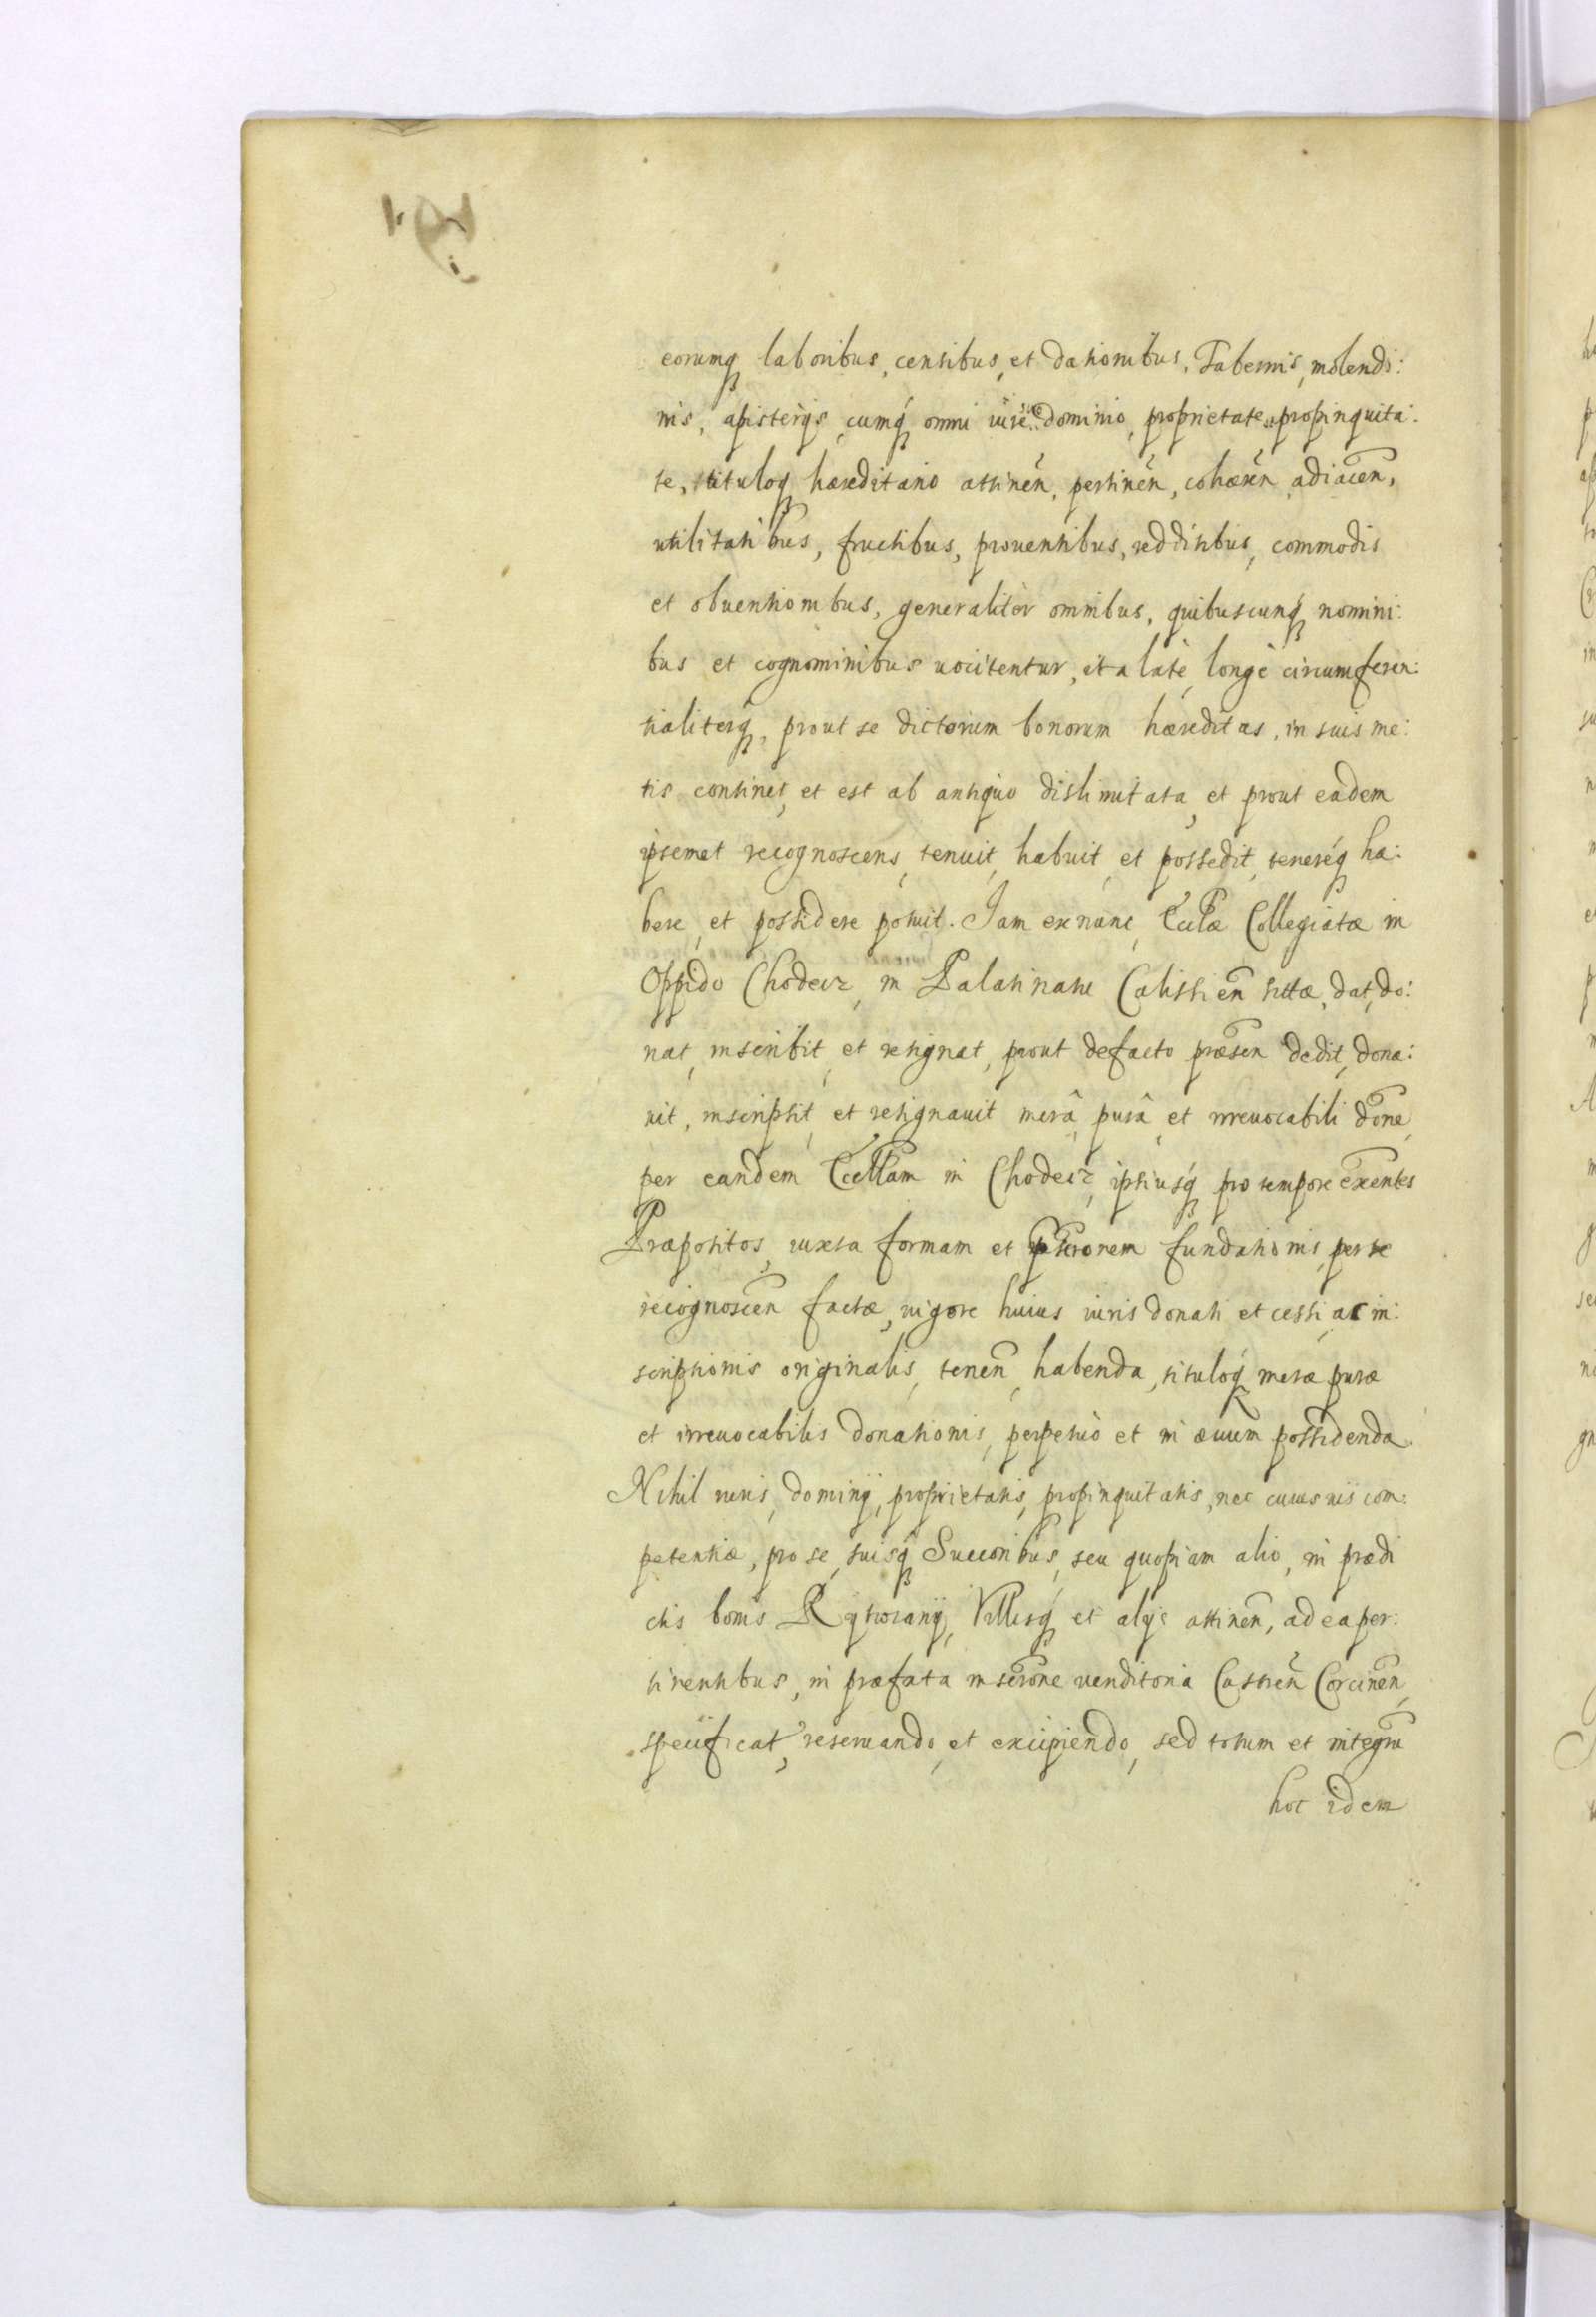 eorumq laboribus, censibus, et dationibus, Tabernis, molendi:
nis, apisterijs, cumq́ omni iure dominio, proprietate propinquita:
te, tituloq hæreditario attineñ, pertineñ, cohæreñ adiaceñ,
utilitatibus, fructibus, prouentibus, redditibus, commodis
et obuentionibus, generalitèr omnibus, quibuscunq́ nomini:
bus et cognominibus uocitentur, ita latè, longè circumferen:
tialiterq́, prout se dictorum bonorum hæreditas, in suis me:
tis continet, et est ab antiquo distimitata, et prout eadem
ipsemet recognoscens, tenuit, habuit, et possedit, tenereq́ ha:
bere, et possidere potuit. Jam ex nunc, Eccłæ Collegiatæ in
Oppido Chodecz, in Palatinatu Calissień sittæ, dat, do:
nat, inscribit, et resignat, prout de facto præseñ dedit, dona:
uit, inscripsit, et resignauit merâ, purâ, et irreuocabili done,
per eandem Eccłłam in Chodecz, ipsiusq́ pro tempore exentes
Præpositos, iuxta formam et fundationis, per se
recognosceñ factæ, uigore huius iuris donati et cessi, ac in:
scriptionis originalis, teneñ, habenda, tituloq́ meræ puræ
et irreuocabilis donationis, perpetuò et in æuum possidenda
Nihil iuris, dominÿ, proprietatis, propinquitatis, nec cuiusuis com:
petentiæ, pro se, suisq́ Succoribus, seu quopiam alio, in prædi
ctis bonis, Villisq́ et alijs attineñ, ad ea per:
tinentibus, in præfata inscrone uenditoria Castreñ Corcineñ,
specificat, reseruando, et excipiendo, sed totum et integrũ
hoc idem